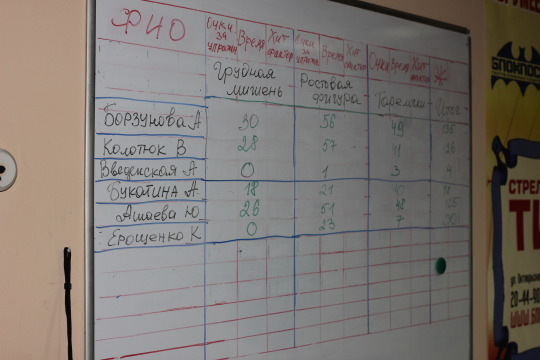 ФИО Очки за упражн Время Хит фактор Очки за упражн Время Хит фактор Очки Время Хит фактор
Грудная мишень Ростовая фигура Тарелочки Итог
Борзунова А 30 56 49 135
Колотюк В 28 57
Введенская А 0 1 3 4
Букотина А 18 21
Ашаева Ю 26 51 48
Ерощенко К 0 23 7 30
БЛОКПОС
СТРЕЛ
ТИ
20-44-90